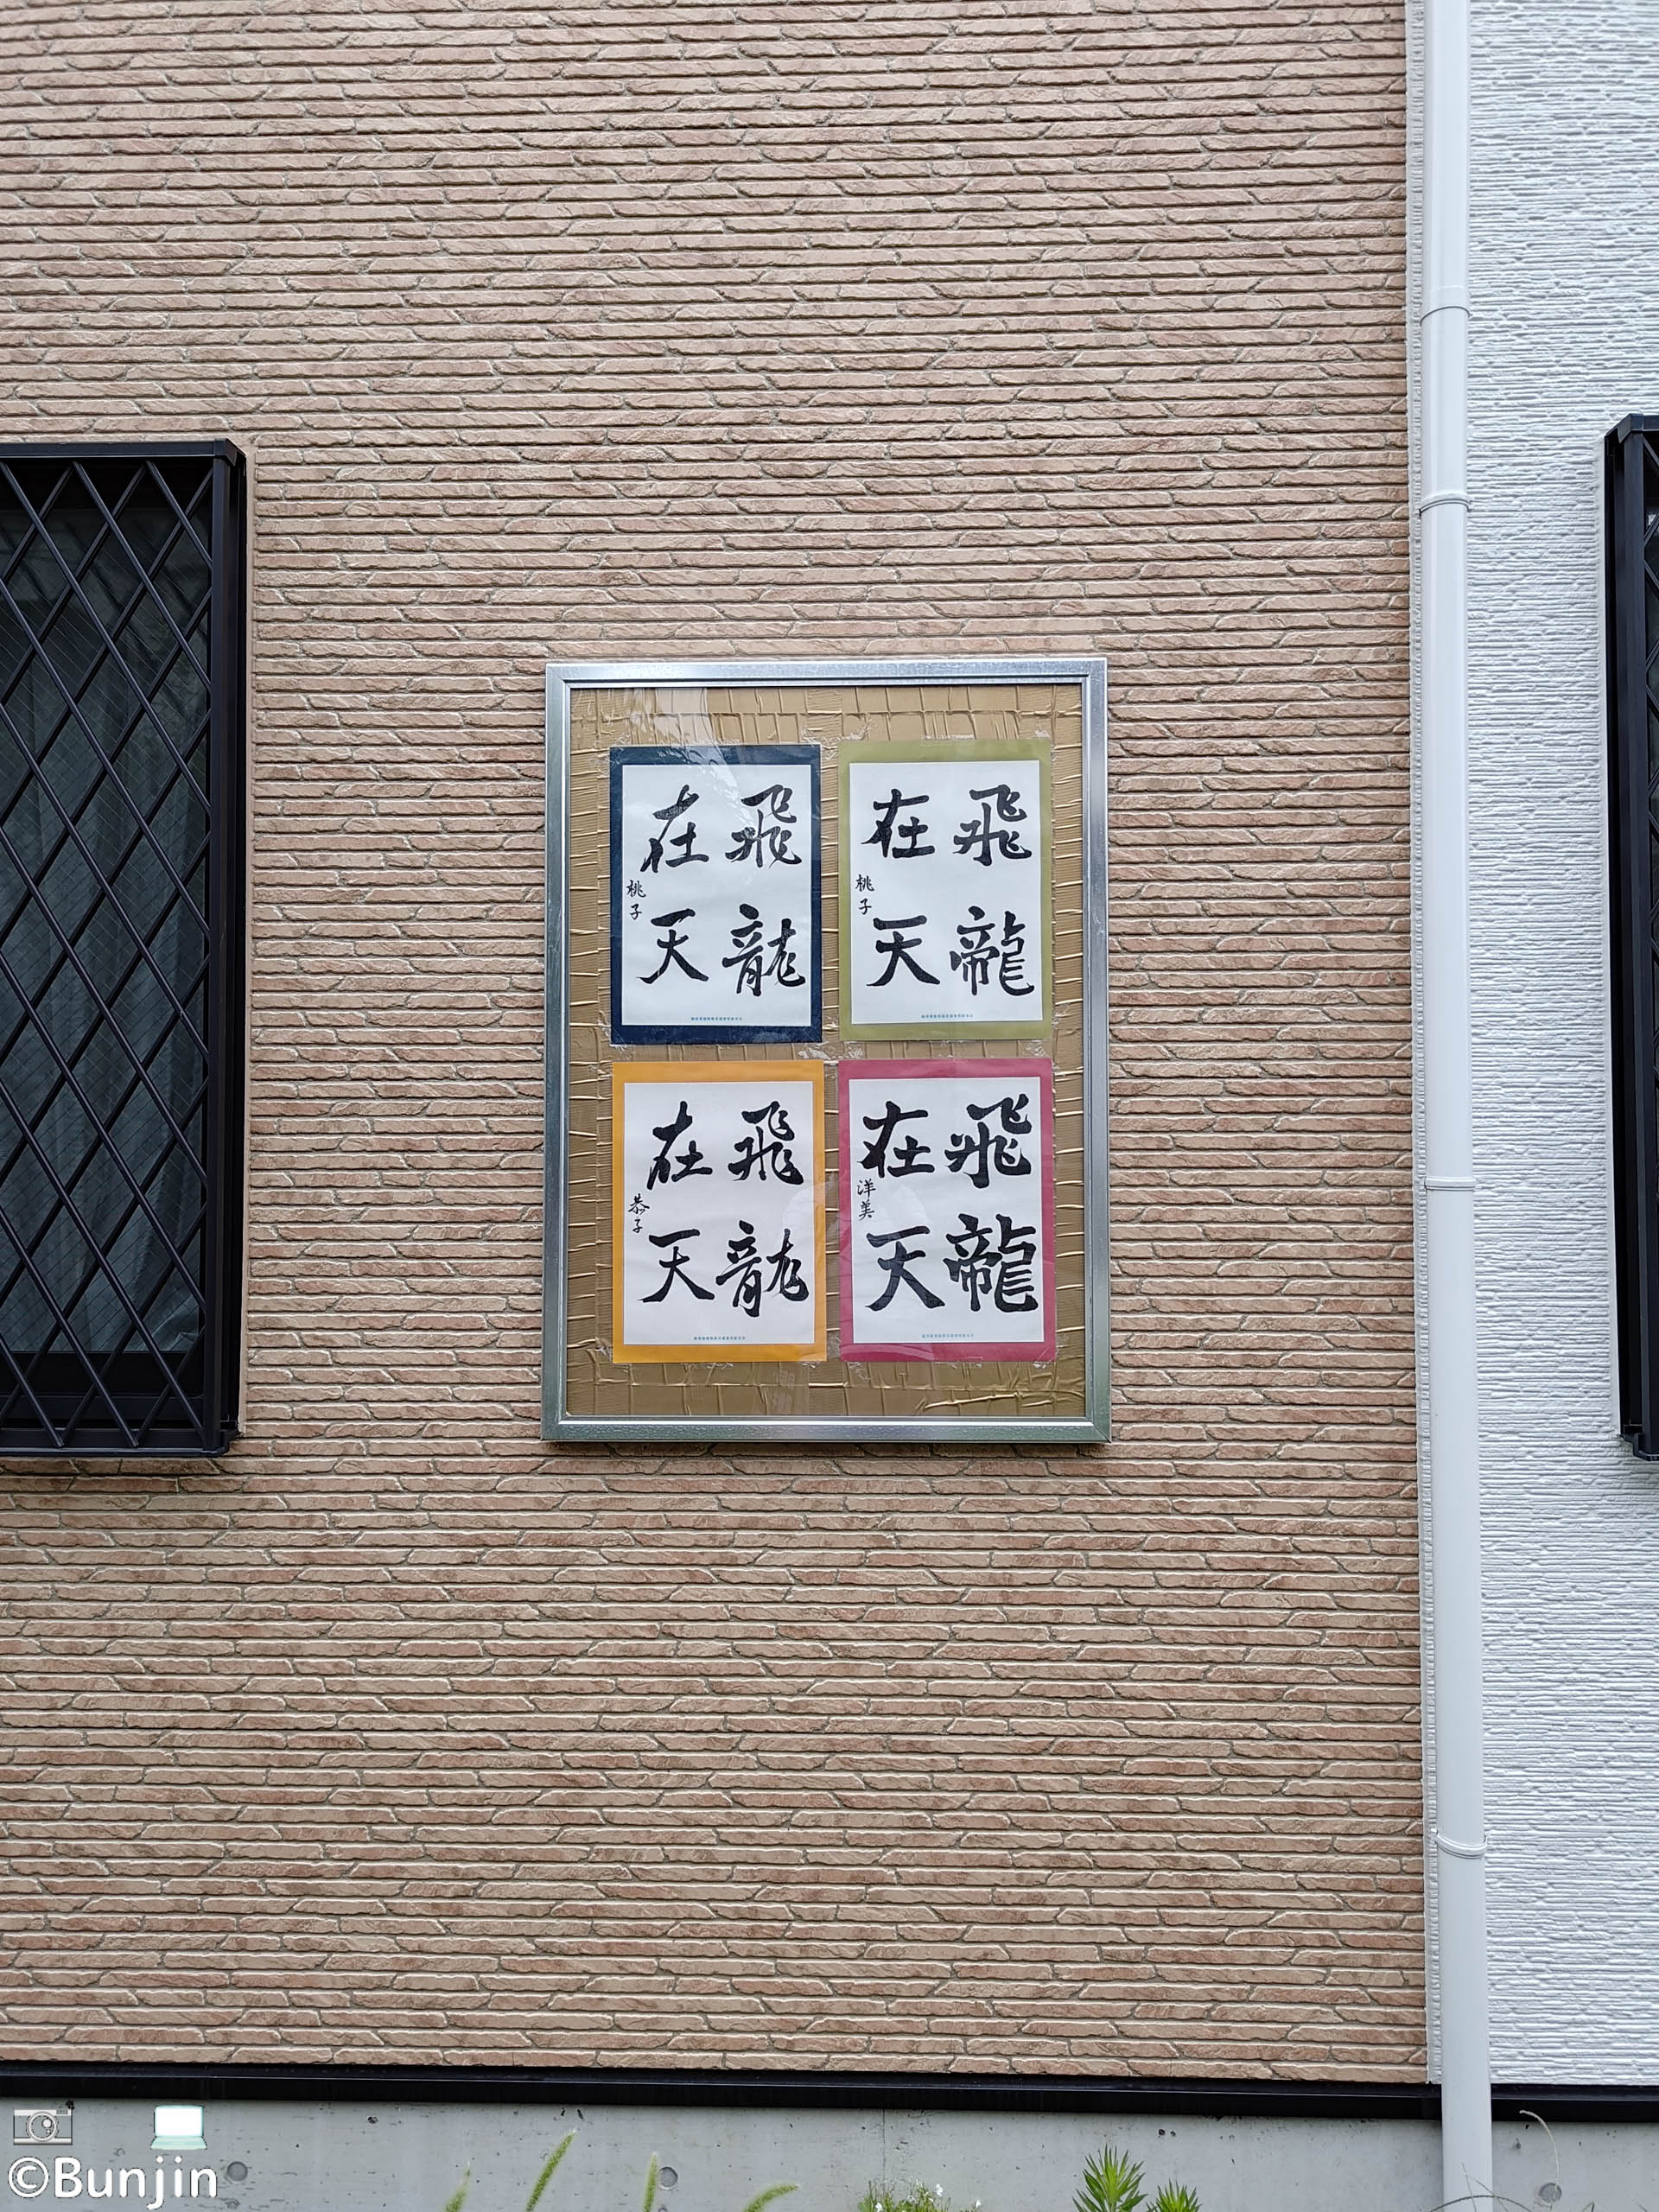 飛龍
在天
桃子
飛龍
在天
桃子
飛龍
在天
恭子
飛龍
在天
洋美
©Bunjin